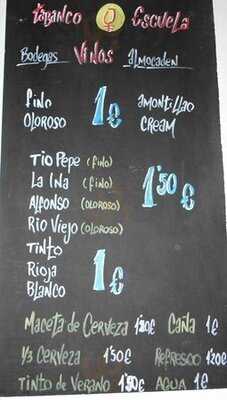 Tabanco Escuela
Bodegas Vinos Almocaden
Fino 1€ Amontillao
Oloroso Cream
Tio Pepe (Fino)
La Ina (Fino) 1'50€
Alfonso (Oloroso)
Rio Viejo (Oloroso)
Tinto
Rioja 1€
Blanco
Maceta de Cerveza 1'20€ Caña 1€
1/3 Cerveza 1'50€ Refresco 1'20€
Tinto de Verano 1'50€ Agua 1€